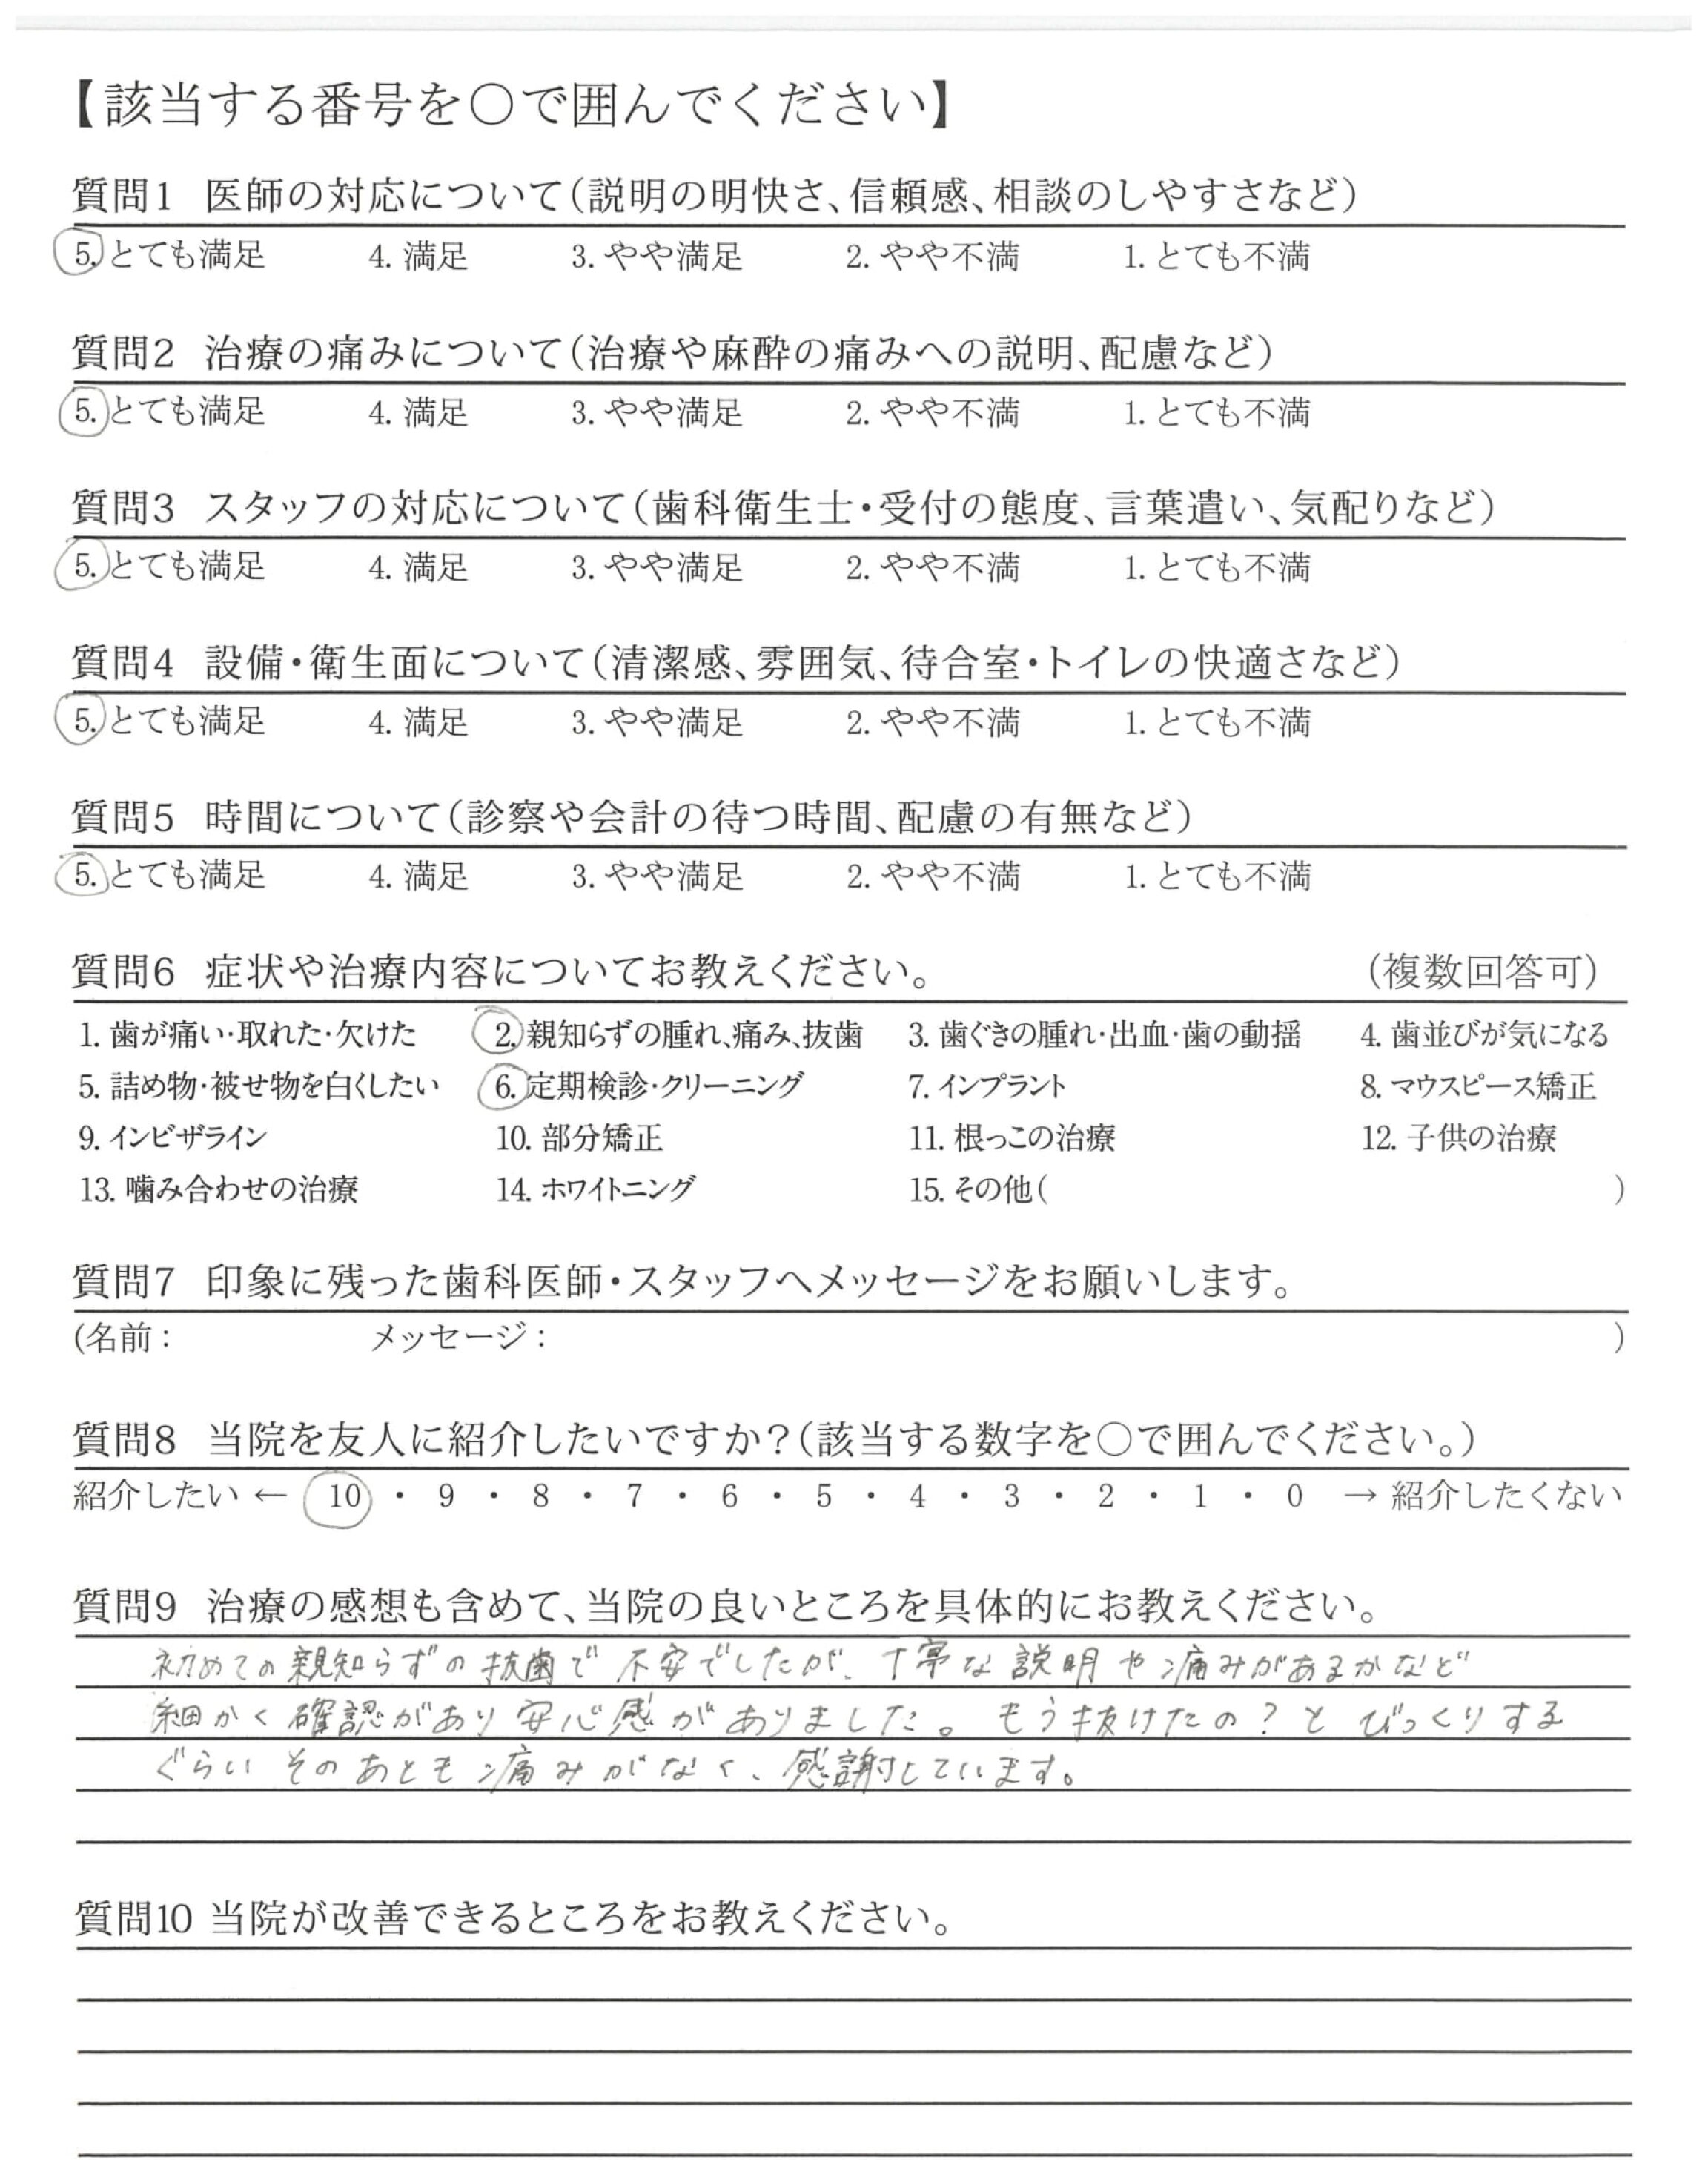 【該当する番号を○で囲んでください】
質問1 医師の対応について(説明の明快さ、信頼感、相談のしやすさなど)
5. とても満足 4. 満足 3. やや満足 2. やや不満 1. とても不満
質問2 治療の痛みについて(治療や麻酔の痛みへの説明、配慮など)
5. とても満足 4. 満足 3. やや満足 2. やや不満 1. とても不満
質問3 スタッフの対応について(歯科衛生士・受付の態度、言葉遣い、気配りなど)
5. とても満足 4. 満足 3. やや満足 2. やや不満 1. とても不満
質問4 設備・衛生面について(清潔感、雰囲気、待合室・トイレの快適さなど)
5. とても満足 4. 満足 3. やや満足 2. やや不満 1. とても不満
質問5 時間について(診察や会計の待つ時間、配慮の有無など)
5. とても満足 4. 満足 3. やや満足 2. やや不満 1. とても不満
質問6 症状や治療内容についてお教えください。 (複数回答可)
1. 歯が痛い・取れた・欠けた 2. 親知らずの腫れ、痛み、抜歯 3. 歯ぐきの腫れ・出血・歯の動揺 4. 歯並びが気になる
5. 詰め物・被せ物を白くしたい 6. 定期検診・クリーニング 7. インプラント 8. マウスピース矯正
9. インビザライン 10. 部分矯正 11. 根っこの治療 12. 子供の治療
13. 噛み合わせの治療 14. ホワイトニング 15. その他( )
質問7 印象に残った歯科医師・スタッフへメッセージをお願いします。
(名前: メッセージ: )
質問8 当院を友人に紹介したいですか?(該当する数字を○で囲んでください。)
紹介したい ← 10 ・ 9 ・ 8 ・ 7 ・ 6 ・ 5 ・ 4 ・ 3 ・ 2 ・ 1 ・ 0 → 紹介したくない
質問9 治療の感想も含めて、当院の良いところを具体的にお教えください。
初めての親知らずの抜歯で不安でしたが、丁寧な説明や痛みがあるかなど
細かく確認があり安心感がありました。もう抜けたの?とびっくりする
ぐらいそのあとも痛みがなく、感謝しています。
質問10 当院が改善できるところをお教えください。